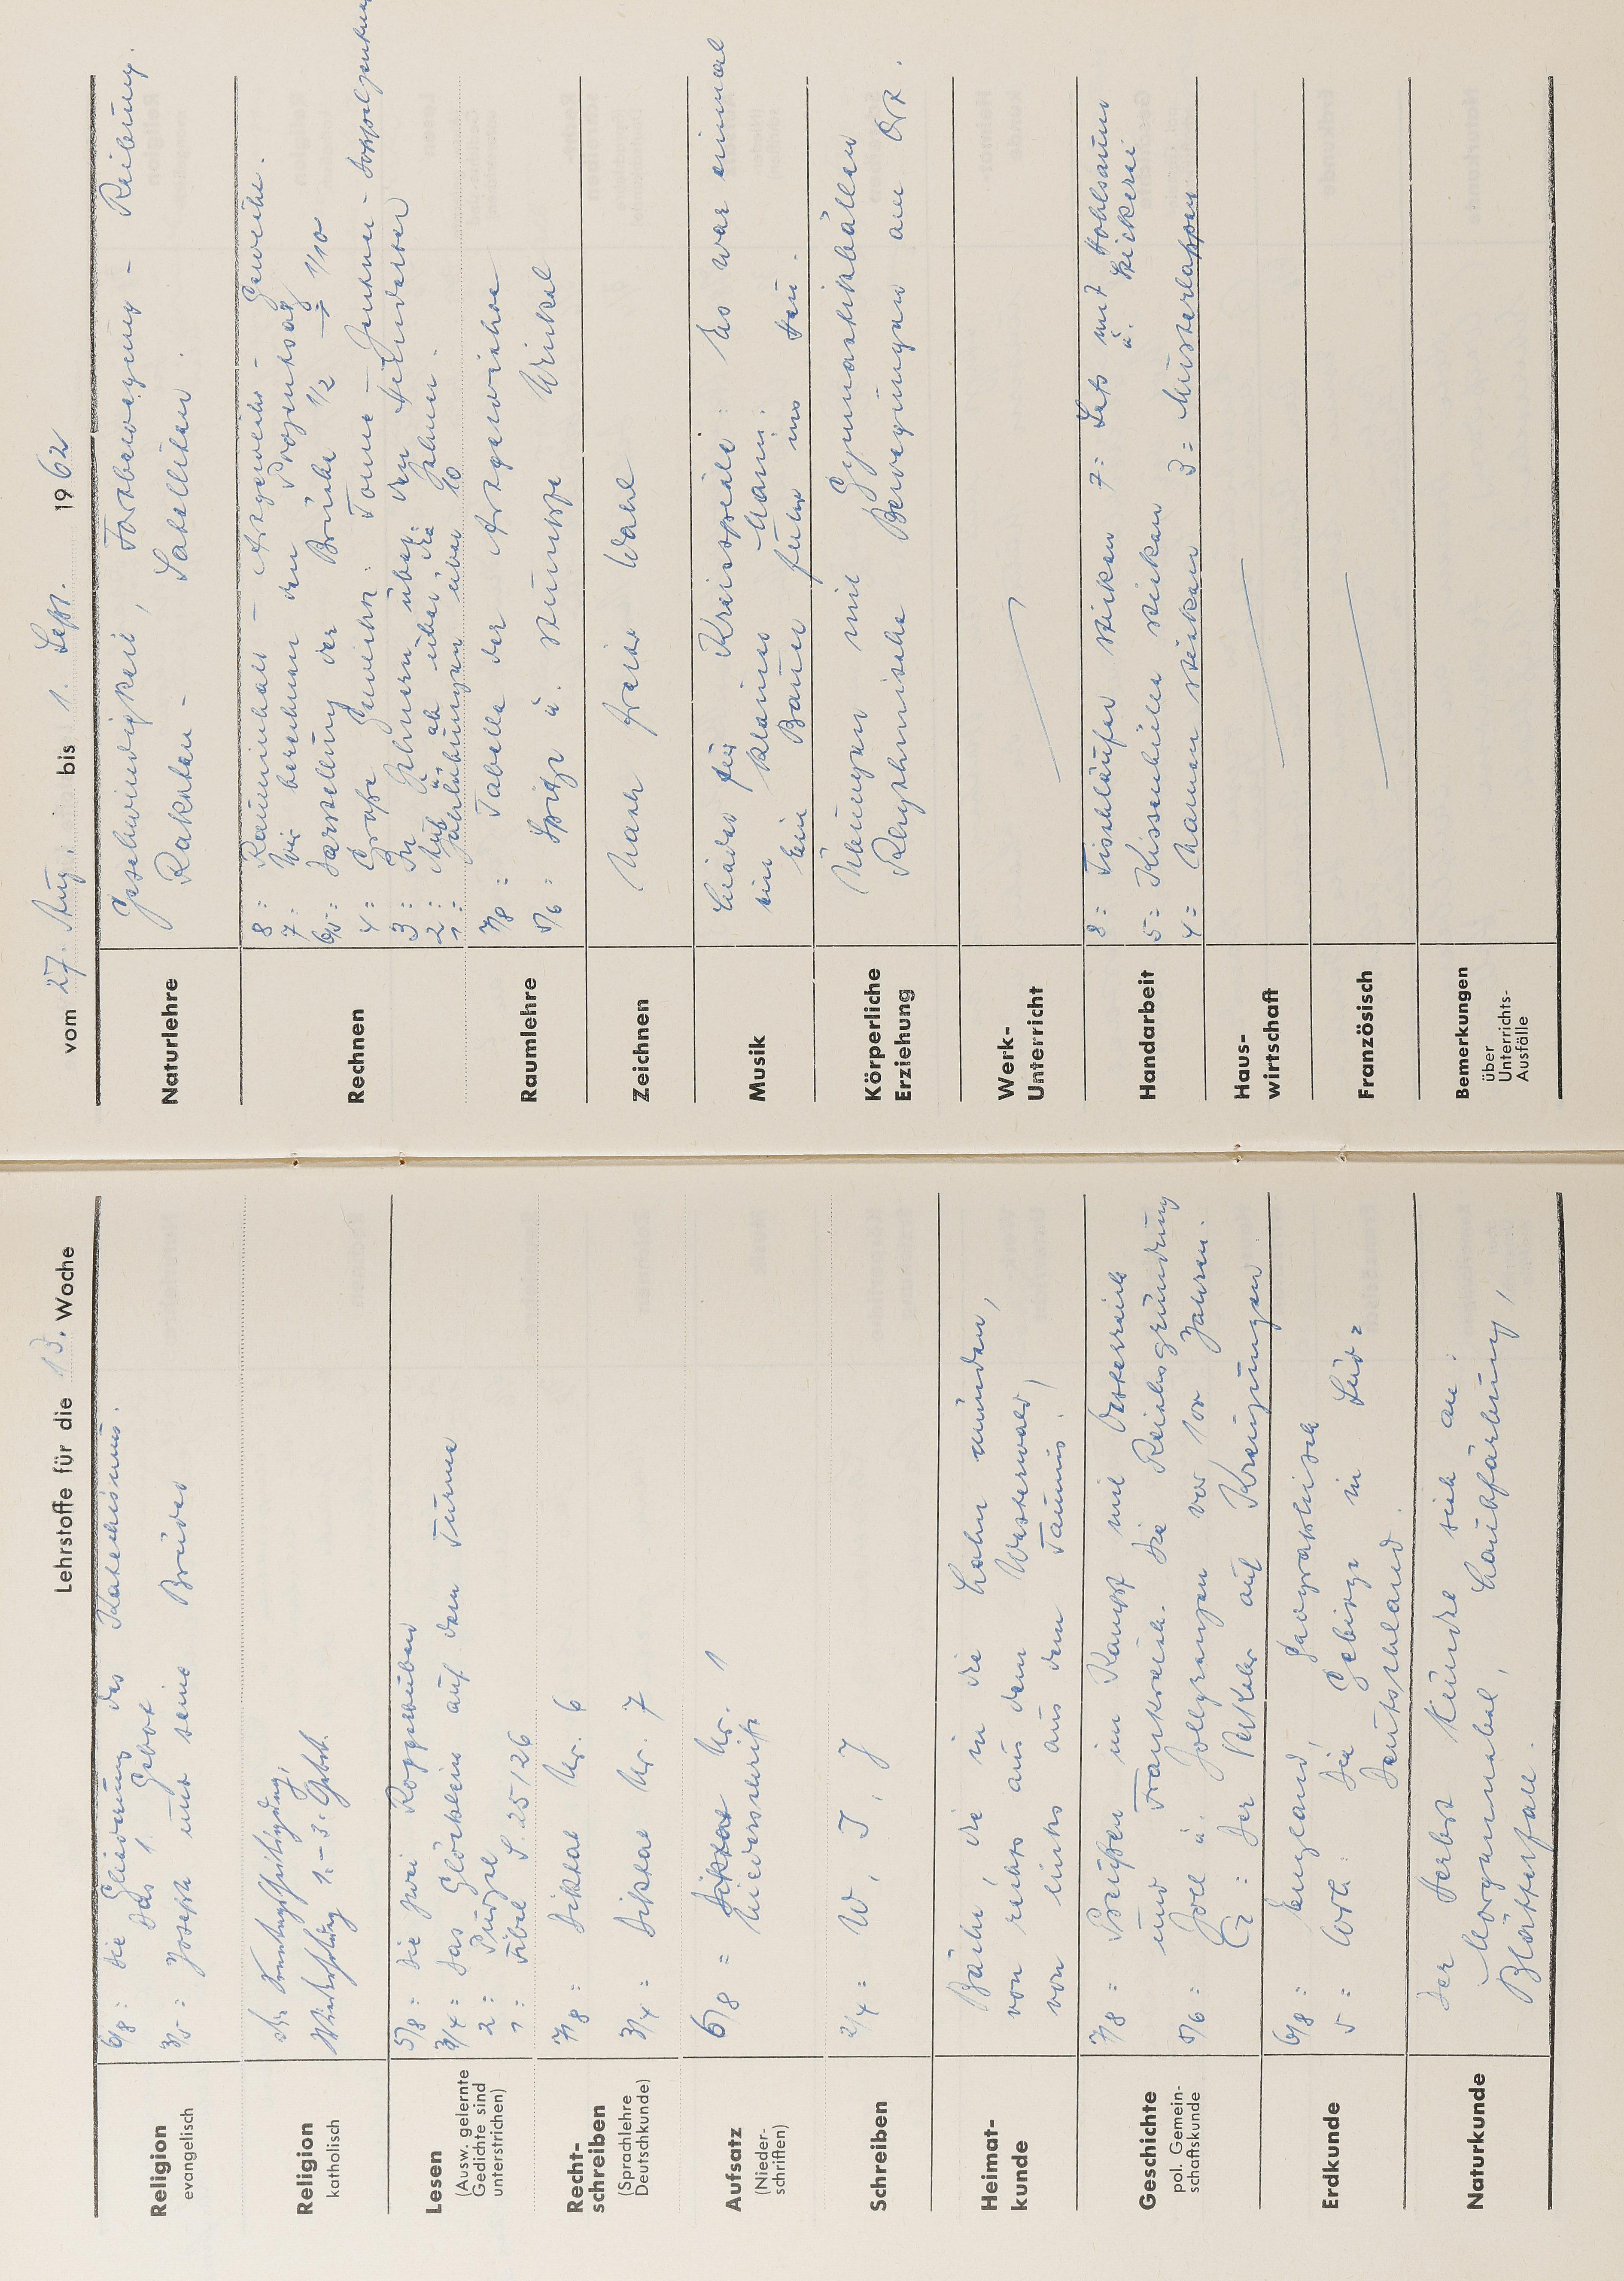 Lehrstoffe für die 13. Woche
Religion
evangelisch
6/8 : Die Gliederung des Katechismus.
Das 1. Gebot
3/5 : Joseph und seine Brüder
Religion
katholisch
Die Sonntagsheiligung,
Wiederholung 1. - 3. Gebot.
Lesen
(Ausw. gelernte
Gedichte sind
unterstrichen)
5/8 : Die zwei
3/4 : Das Glöcklein auf dem Turme
2 :
1 : Fibel S. 25/26
Recht-
schreiben
(Sprachlehre
Deutschkunde)
7/8 : Diktat Nr. 6
3/4 : Diktat Nr. 7
Aufsatz
(Nieder-
schriften)
6/8 = Diktat Nr. 1
Niederschrift
Schreiben
2/4 = W, I, J
Heimat-
kunde
Bäche, die in die Lahn münden,
von rechts aus dem Westerwald,
von links aus dem Taunus.
Geschichte
pol. Gemein-
schaftskunde
7/8 = Preußen im Kampf mit Österreich
und Frankreich. Die Reichsgründung
5/6 = Zoll u. Zollgrenzen vor 100 Jahren.
: Der Verkehr auf Kreuzungen
Erdkunde
6/8 = England, geographisch
5 = Wdh: Die Gebirge in Süd=
deutschland.
Naturkunde
Der Herbst kündet sich an:
Morgennebel, Laubfärbung,
Blätterfall.
vom 27. Aug. bis 1. Sept. 1962
Naturlehre
Geschwindigkeit, Fortbewegung - Reibung.
Raketen - Satelliten.
Rechnen
8 : Rauminhalt - Artgewicht - Gewicht.
7 : Wir berechnen den Prozentsatz
6/5 = Darstellung der Brüche 1/2 → 1/10
4 = Große Gewichte: Tonne - Zentner - Doppelzentner
3 : In Zehnern über den Hunderter
2 : Auf u. ab über die Zehner.
1 : Zählübungen über 10
Raumlehre
7/8 = Tabelle der Artgewichte
5/6 = Spitze u. stumpfe Winkel
Zeichnen
Nach freier Wahl
Musik
Lieder für Kreisspiele: Es war einmal
ein kleiner Mann.
Ein Bauer fuhr ins Heu.
Körperliche
Erziehung
Übungen mit Gymnastikbällen
Rhythmische Bewegungen am Ort.
Werk-
Unterricht
Handarbeit
8 = Tischläufer sticken 7 = Satz mit Hohlsaum
u. Stickerei
5 = Kissenhülle sticken
4 = Namen sticken 3 = Musterlappen
Haus-
wirtschaft
Französisch
Bemerkungen
über
Unterrichts-
Ausfälle